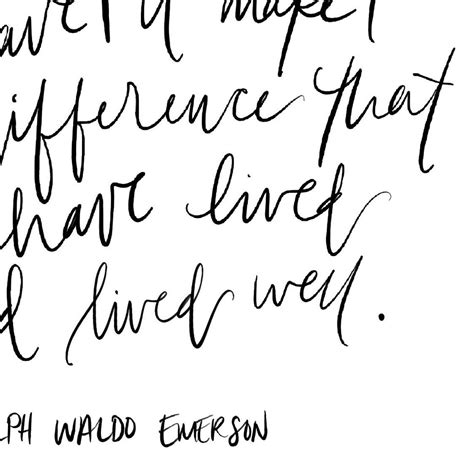 ave it make
ifference that
have lived
d lived well.
LPH WALDO EMERSON